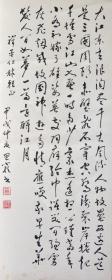 大江東去浪淘尽千古風流人物故壘西边人道
是三國周郎赤壁乱石穿空驚濤拍岸卷起千
堆雪江山如畫一時多少豪傑遥想公瑾當年
小喬初嫁了雄姿英發羽扇綸巾談笑間
灰飛煙滅故國神遊多情應笑我早生華
髮人生如夢一尊還酹江月
甲戌仲夏